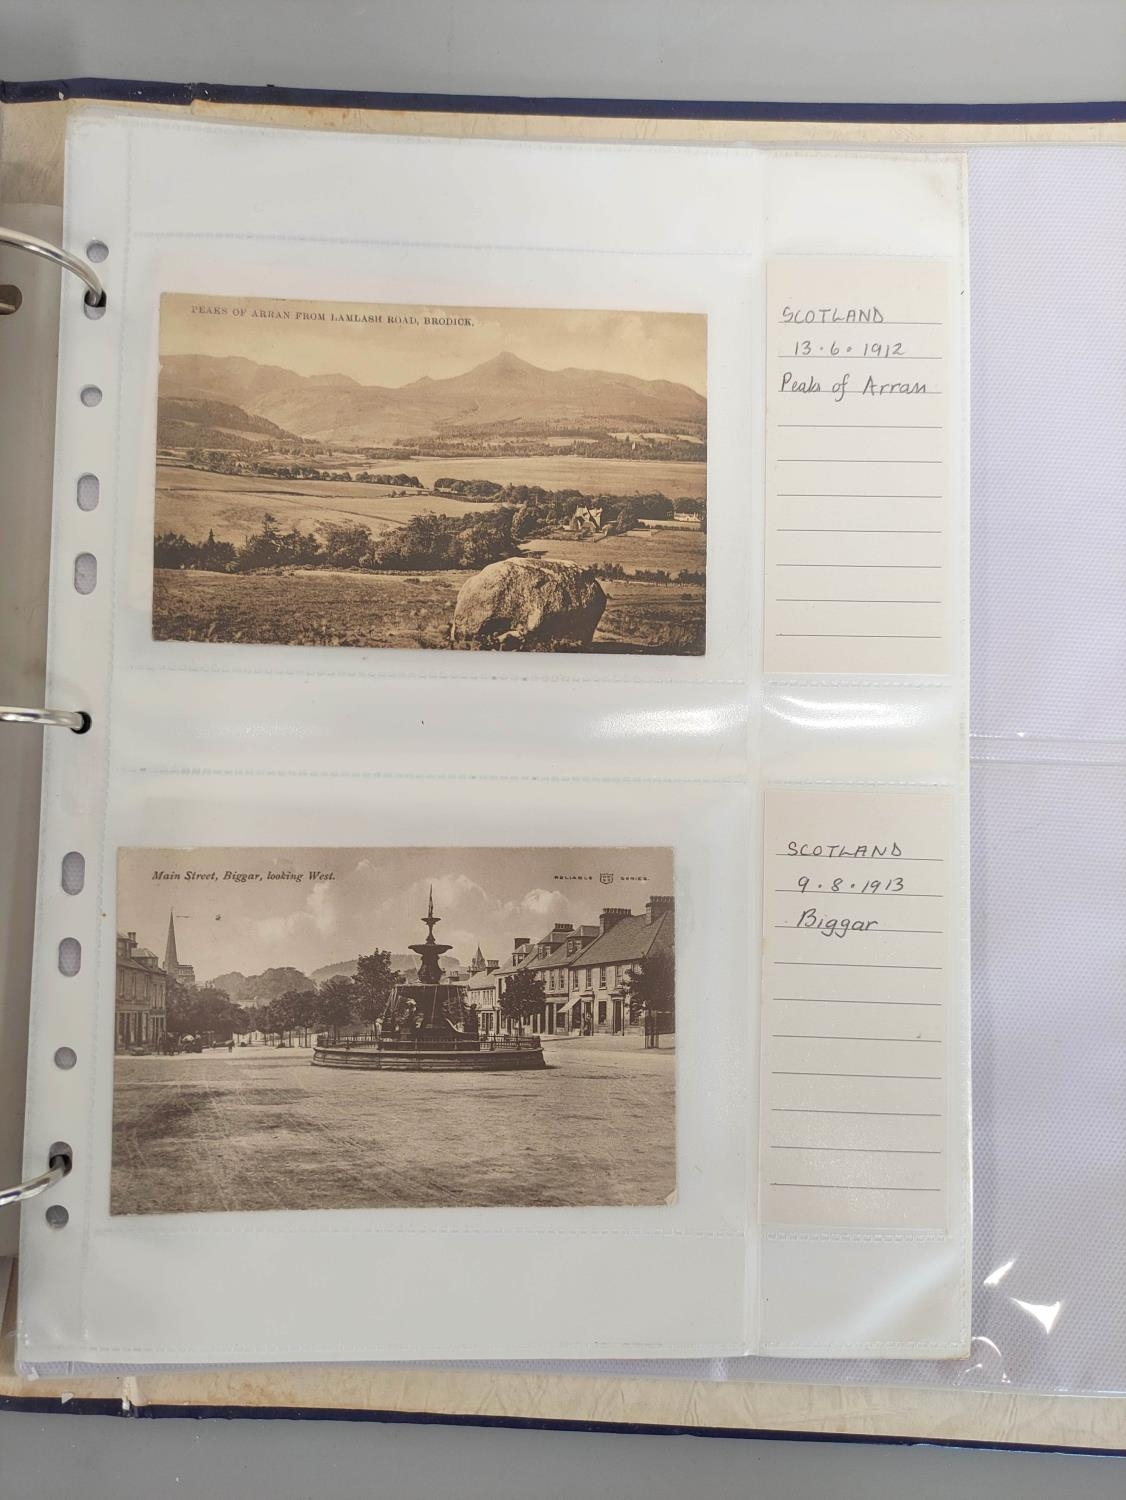 PEAKS OF ARRAN FROM LAMLASH ROAD, BRODICK.
SCOTLAND
13.6.1912
Peaks of Arran
Main Street, Biggar, looking West.
RELIABLE SERIES.
SCOTLAND
9.8.1913
Biggar